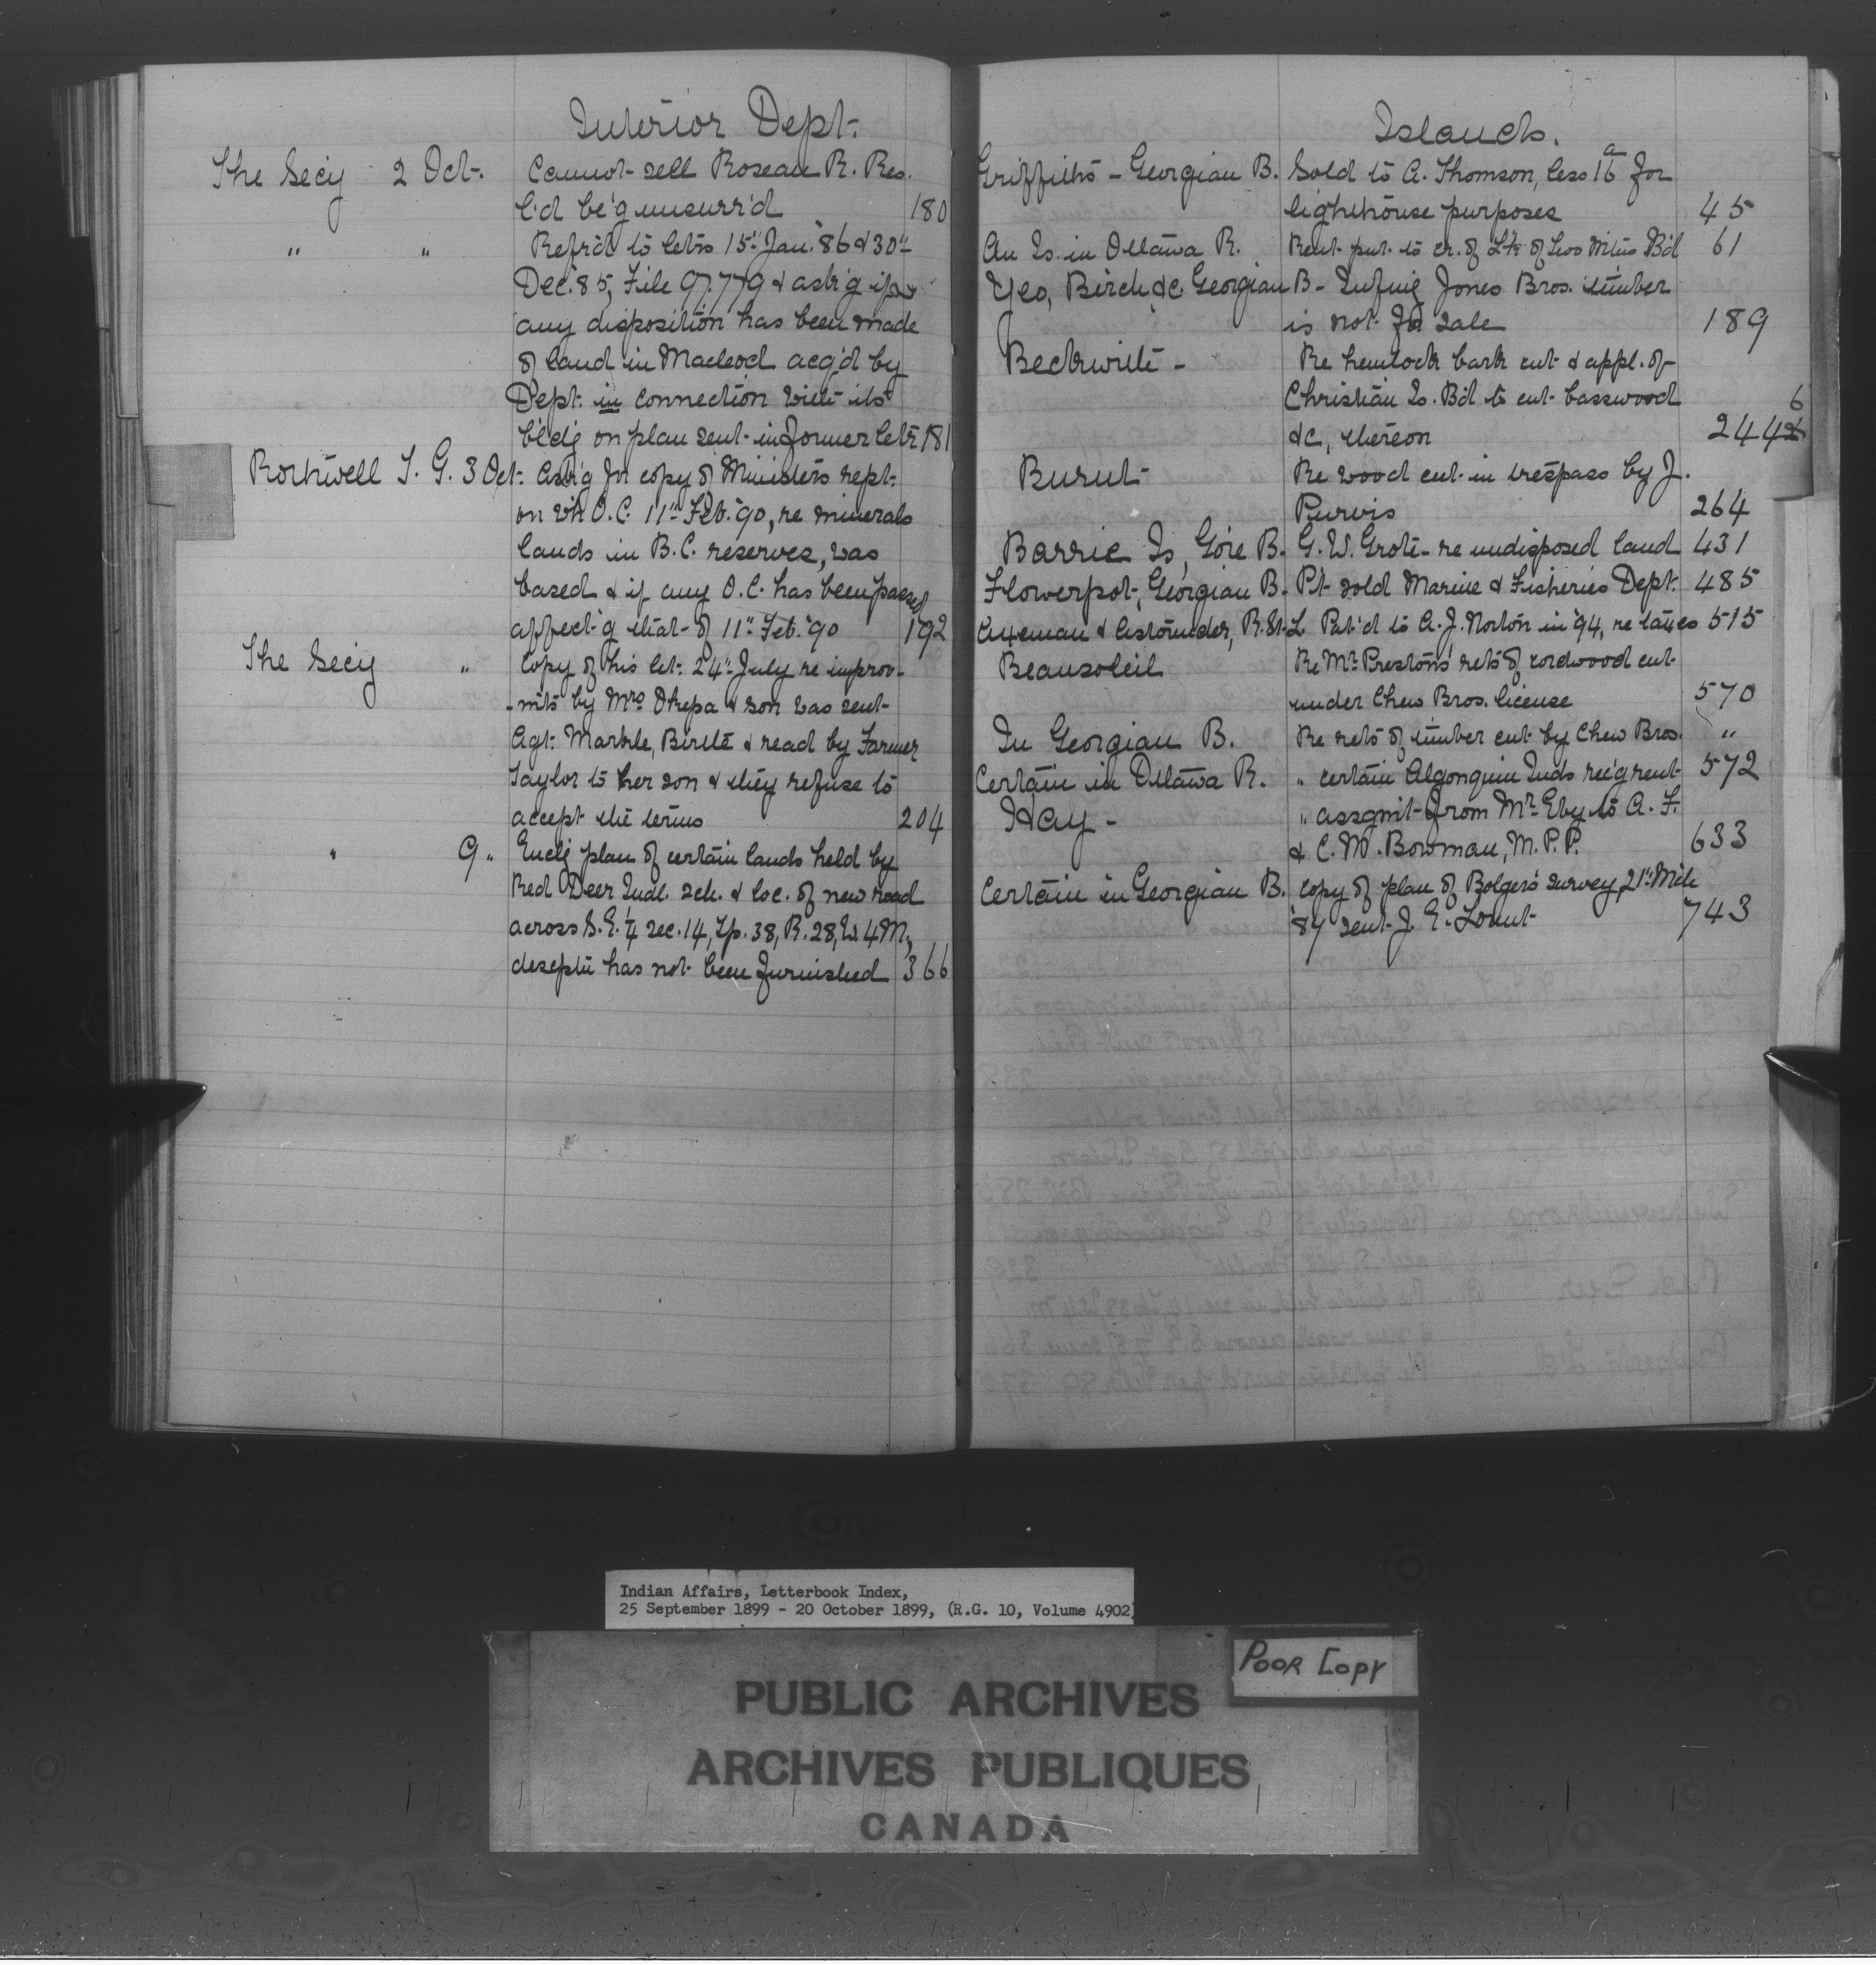 Interior Dept.
The Secy 2 Oct. Cannot sell Roseau R. Res.
l'd be'g unsurr'd 180
" " Refr'd to letrs 15" Jan. '86 & 30"
Dec. '85, File 97.779 & ask'g if
any disposition has been made
of land in Macleod acq'd by
Dept. in connection with its
b'ld'g on plan sent in former letr 181
Rothwell T. G. 3 Oct. Ask'g for copy of Ministers rept.
on wh O.C. 11" Feb. '90, re minerals
lands in B.C. reserves, was
based & if any O.C. has been passed
affect'g that of 11" Feb. '90 192
The Secy " Copy of his let. 24" July re improv-
-mts by Mrs Okepa & son was sent
Agt. Markle, Birtle & read by Farmer
Taylor to her son & they refuse to
accept the terms 204
" 9 " Encl'g plan of certain lands held by
Red Deer Indl. sch. & loc. of new road
across S.E. ¼ sec. 14, Tp. 38, R. 28, W. 4 M,
descptn has not been furnished 366
Islands.
Griffiths - Georgian B. Sold to A. Thomson, less 16 a for
lighthouse purposes 45
An Is. in Ottawa R. Rent put to cr. of L. of Two Mtns B'd 61
Yeo, Birch &c Georgian B - Infm'g Jones Bros. timber
is not for sale 189
Beckwith - Re hemlock bark cut & appl. of
Christian Is. B'd to cut basswood
&c, thereon 244 6
Burnt Re wood cut in trespass by J.
Purvis 264
Barrie Is, Gore B. G. W. Grote - re undisposed land 431
Flowerpot, Georgian B. P't sold Marine & Fisheries Dept. 485
Axeman & Astounder, R. St. L. Pat'd to A. J. Norton in '94, re taxes 515
Beausoleil Re Mr Preston's rets of cordwood cut
under Chew Bros. license 570
In Georgian B. Re rets of timber cut by Chew Bros. "
Certain in Ottawa R. " certain Algonquin Inds rec'g rent 572
Hay - " assgmt from Mr Eby to A. F.
& C. M. Bowman, M.P.P. 633
Certain in Georgian B. copy of plan of Bolger's survey, 21" Mch
'87 sent J. E. Lount 743
Indian Affairs, Letterbook Index,
25 September 1899 - 20 October 1899, (R.G. 10, Volume 4902)
POOR COPY
PUBLIC ARCHIVES
ARCHIVES PUBLIQUES
CANADA